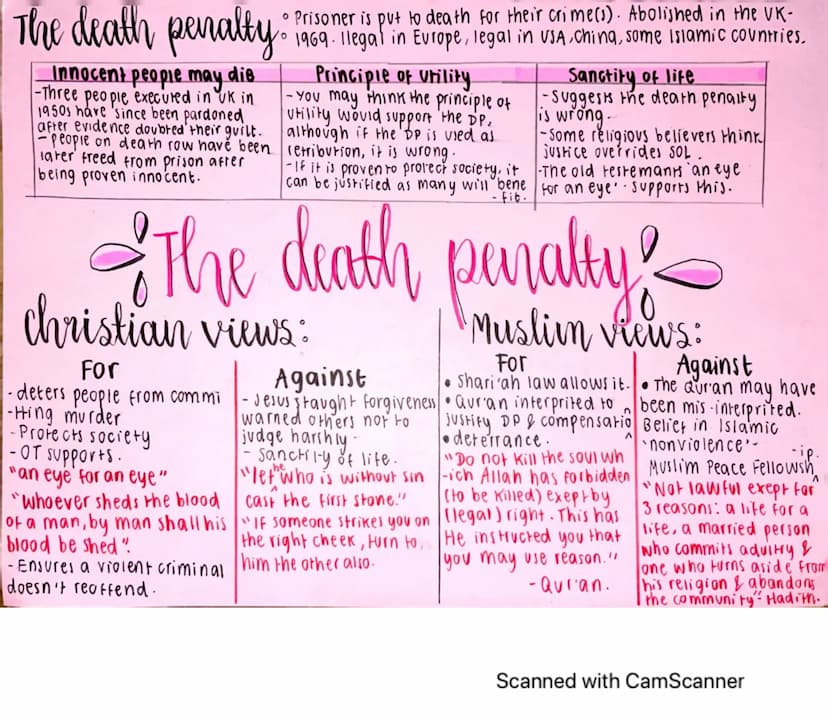 The death penalty
° Prisoner is put to death for their crime(s). Abolished in the UK-
° 1969. Ilegal in Europe, legal in USA, China, some Islamic countries.
Innocent people may die
-Three people executed in UK in
1950s have since been pardoned
after evidence doubted their guilt.
- people on death row have been
later freed from prison after
being proven innocent.
Principle of utility
-You may think the principle of
utility would support the DP,
although if the DP is used as
retribution, it is wrong.
-If it is proven to protect society, it
can be justified as many will bene
-fit.
Sanctity of life
- Suggests the death penalty
is wrong.
-Some religious believers think
justice overrides SOL.
-The old testemants 'an eye
for an eye' supports this.
The death penalty
Christian views:
For
- deters people from commi
-tting murder
- Protects society
- OT supports.
"an eye for an eye"
"whoever sheds the blood
of a man, by man shall his
blood be shed".
- Ensures a violent criminal
doesn't reoffend.
Against
- Jesus taught forgiveness
warned others not to
judge harshly.
- Sanctity of life.
"let he who is without sin
cast the first stone."
"If someone strikes you on
the right cheek, turn to
him the other also.
Muslim views:
For
• Shari'ah law allows it.
• Qur'an interprited to
justify DP & compensatio^n
• deterrance.
"Do not kill the soul wh
-ich Allah has forbidden
(to be killed) exept by
(legal) right. This has
He instructed you that
you may use reason."
- Qur'an.
Against
• The Qur'an may have
been mis-interprited.
Belief in Islamic
'nonviolence'-
Muslim Peace Fellowsh^-ip.
"Not lawful exept for
3 reasons: a life for a
life, a married person
who commits adultry &
one who turns aside from
his religion & abandons
the community"- Hadith.
Scanned with CamScanner